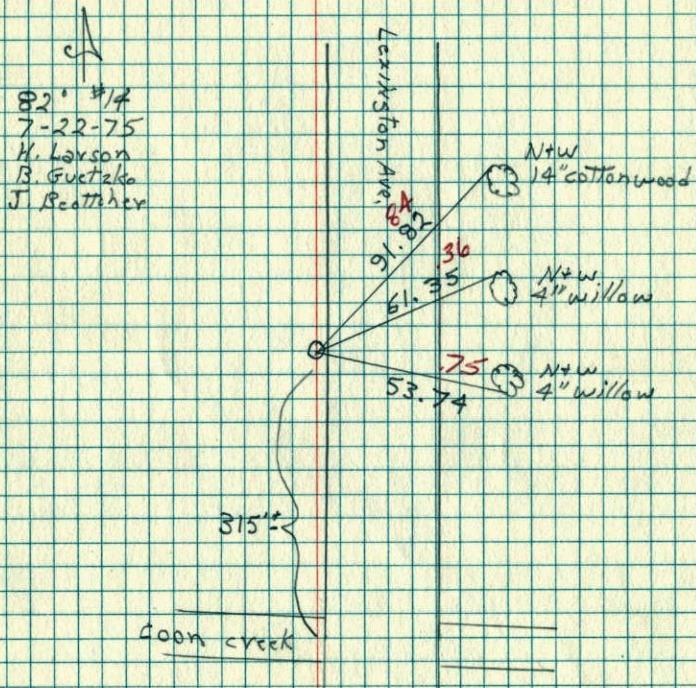 82° #14
7-22-75
H. Larson
B. Guetzko
J Beottcher
Lexington Ave.
N+W
14" cottonwood
91.82
.84
N+W
4" willow
61.35
.36
N+W
4" willow
53.74
.75
315'±
Coon creek